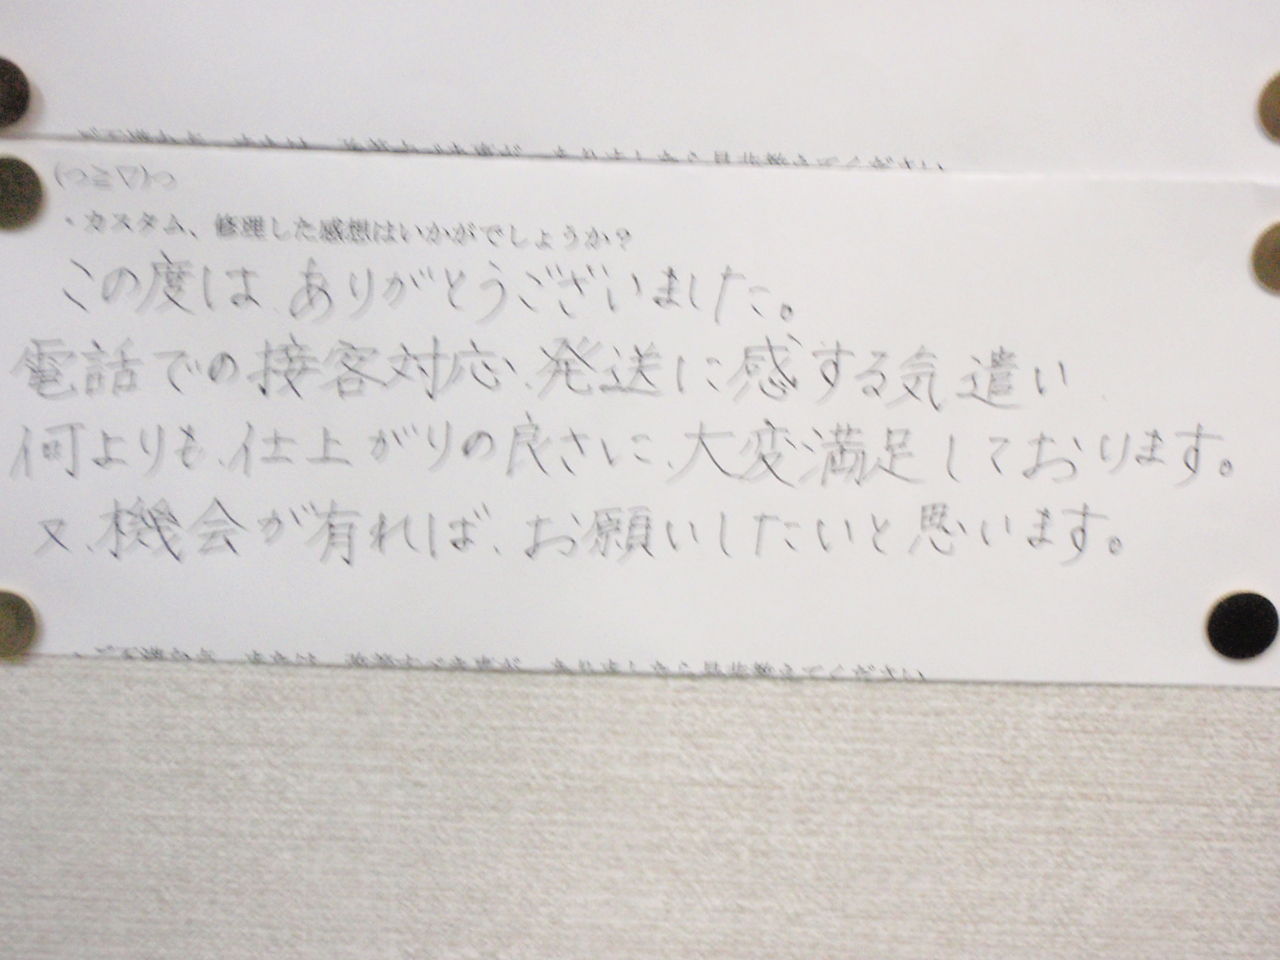 (っ≧▽)っ
・カスタム、修理した感想はいかがでしょうか？
この度は、ありがとうございました。
電話での接客対応、発送に感する気遣い、
何よりも、仕上がりの良さに、大変満足しております。
又、機会が有れば、お願いしたいと思います。